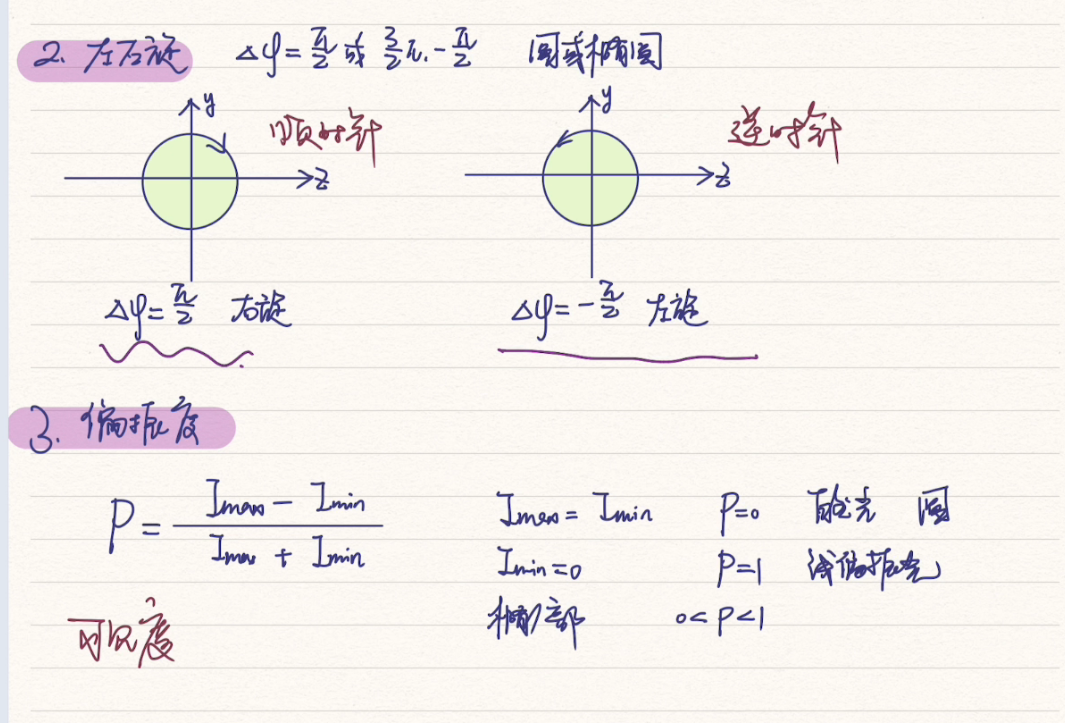 2. 左右旋 Δφ=π/2 或 3/2π, -π/2 圆或椭圆
y 顺时针 y 逆时针
z z
Δφ=π/2 右旋 Δφ=-π/2 左旋
3. 偏振度
P = (Imax - Imin)/(Imax + Imin) Imax = Imin P=0 自然光 圆
Imin=0 P=1 线偏振光
可见度 椭/部 0<P<1